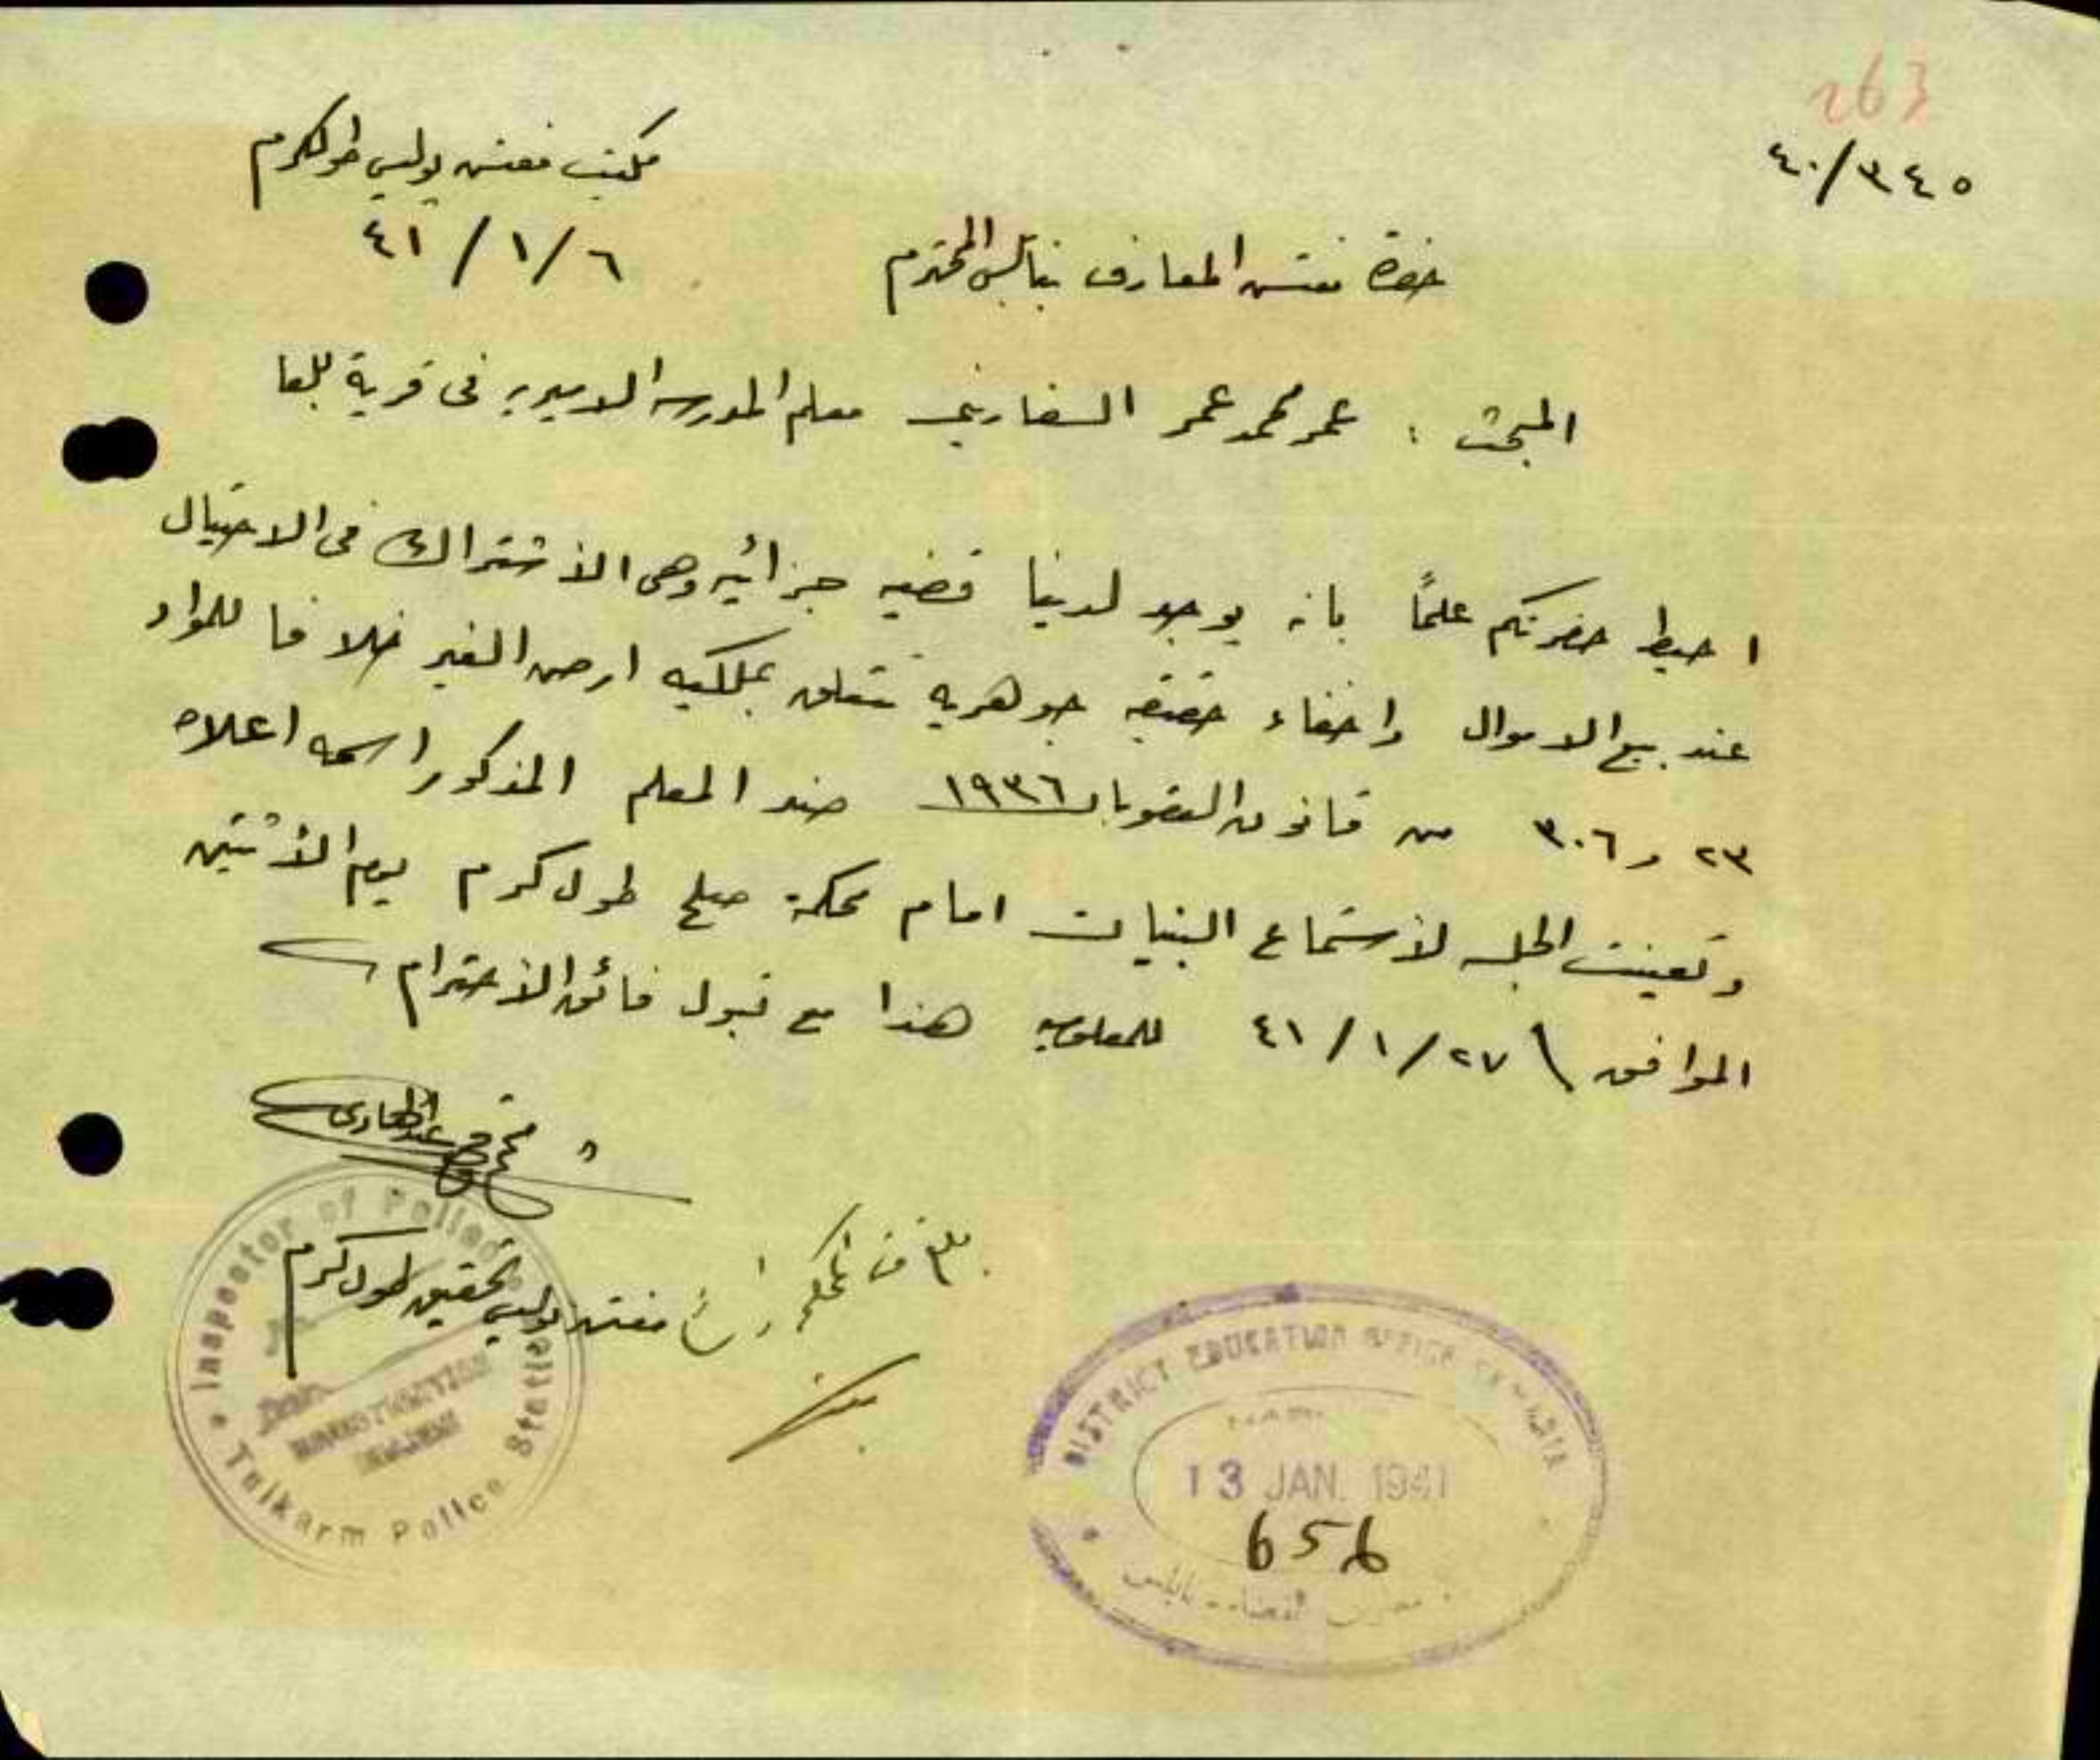 263
٣٤٥/٤٠
مكتب مفتش بوليس طولكرم
٤١/١/٦
حضرة مفتش المعارف بنابلس المحترم
المبحث : عمر محمد عمر السفاريني معلم المدرسه الاميريه في قرية بلعا
احيط حضرتكم علماً بانه يوجد لدينا قضيه جزائيه وهي الأشتراك في الاحتيال
عند بيع الاموال واخفاء حقيقه جوهريه تتعلق بملكيه ارض الغير خلافا للمواد
٢٣ و ٣٠٦ من قانون العقوبات ١٩٣٦ ضد المعلم المذكور اسمه اعلاه
وتعينت الجلسه لأستماع البينات امام محكمة صلح طول كرم يوم الأثنين
الموافق ٤١/١/٢٧ للمعلوميه هذا مع قبول فائق الأحترام
مفتش بوليس تحقيق طول كرم
Inspector of Police
INVESTIGATION
Tulkarm Police Station
DISTRICT EDUCATION OFFICE SAMARIA
13 JAN. 1941
656